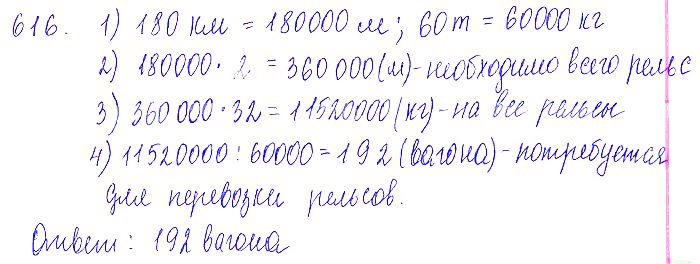 616. 1) 180 км = 180000 м; 60 т = 60000 кг
2) 180000 · 2 = 360 000 (м) - необходимо всего рельс
3) 360 000 · 32 = 11520000 (кг) - на все рельсы
4) 11520000 : 60000 = 192 (вагона) - потребуется
для перевозки рельсов.
Ответ: 192 вагона